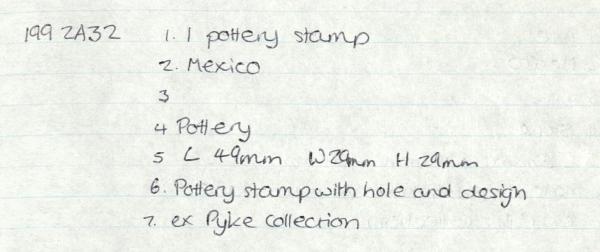 199 2A32 1. 1 pottery stamp
2. Mexico
3
4 Pottery
5 L 49mm W29mm H 29mm
6. Pottery stamp with hole and design
7. ex Pyke collection